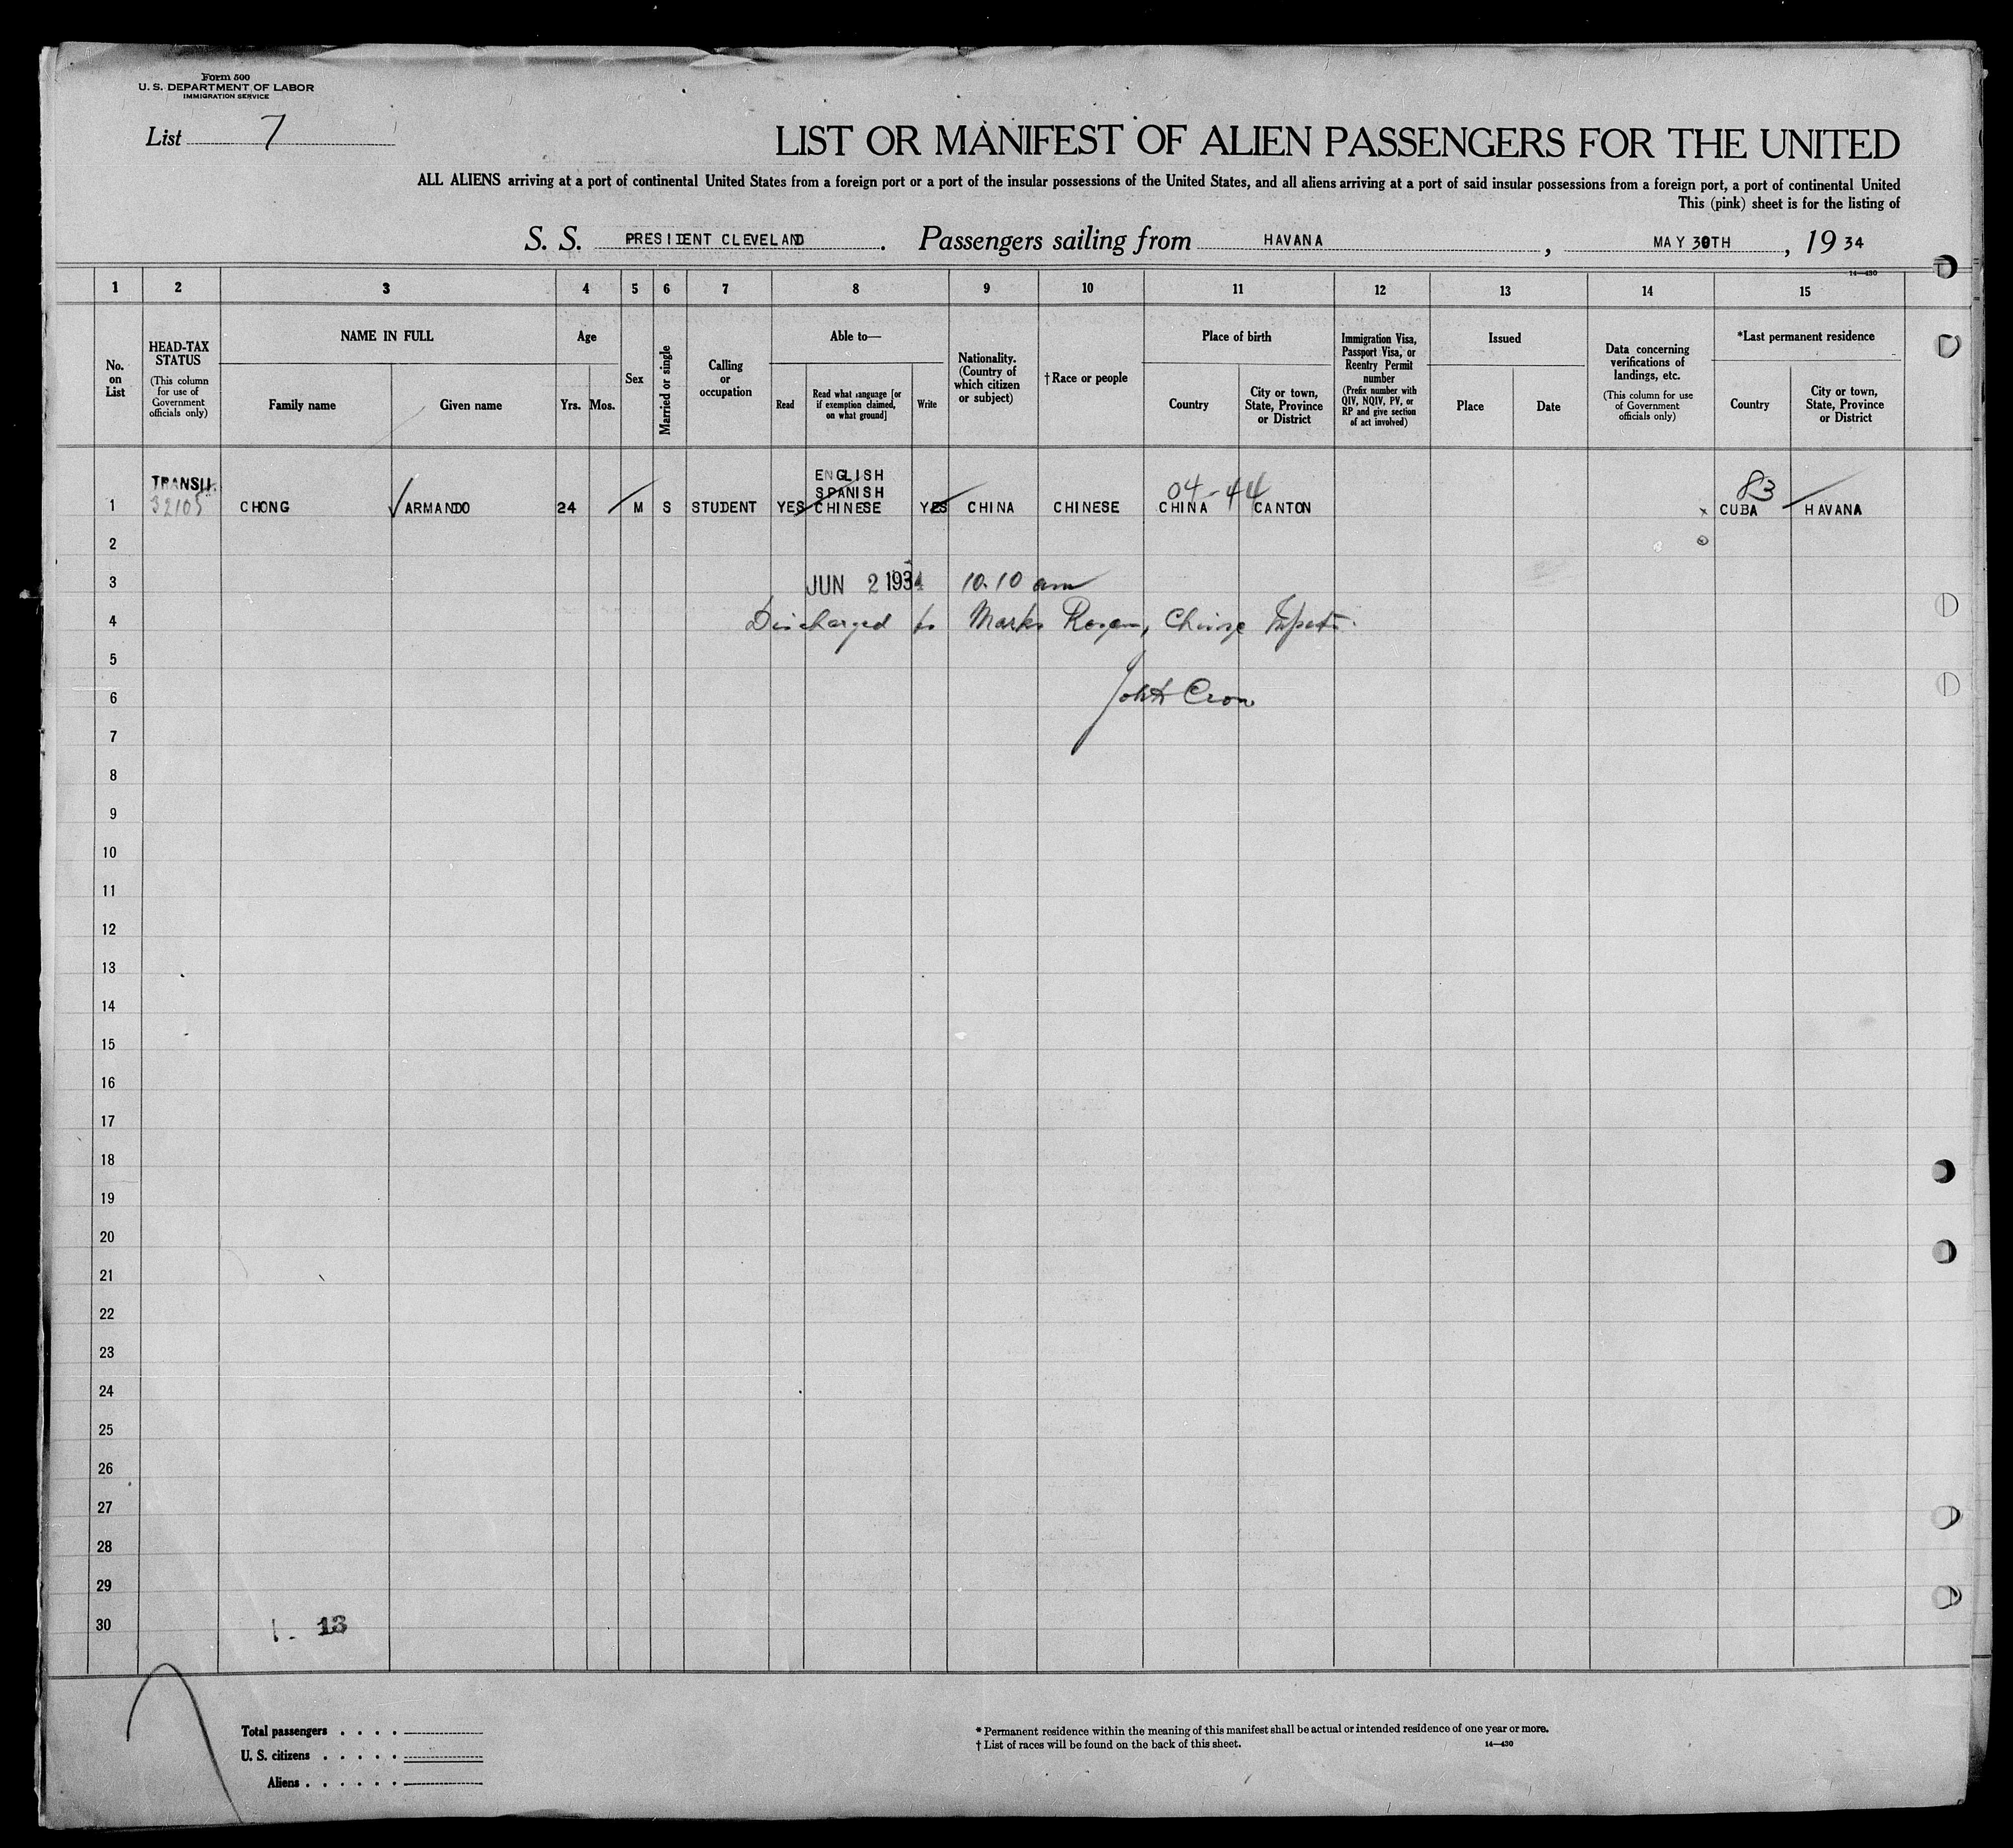 Form 500
U. S. DEPARTMENT OF LABOR
IMMIGRATION SERVICE
List 7
LIST OR MANIFEST OF ALIEN PASSENGERS FOR THE UNITED
ALL ALIENS arriving at a port of continental United States from a foreign port or a port of the insular possessions of the United States, and all aliens arriving at a port of said insular possessions from a foreign port, a port of continental United
This (pink) sheet is for the listing of
S. S. PRESIDENT CLEVELAND. Passengers sailing from HAVANA, MAY 30TH, 19 34
14—430
1 2 3 4 5 6 7 8 9 10 11 12 13 14 15
No. on List
HEAD-TAX STATUS
(This column for use of Government officials only)
NAME IN FULL
Family name
Given name
Age
Yrs. Mos.
Sex
Married or single
Calling or occupation
Able to—
Read
Read what language [or if exemption claimed, on what ground]
Write
Nationality. (Country of which citizen or subject)
†Race or people
Place of birth
Country
City or town, State, Province or District
Immigration Visa, Passport Visa, or Reentry Permit number
(Prefix number with QIV, NQIV, PV, or RP and give section of act involved)
Issued
Place
Date
Data concerning verifications of landings, etc.
(This column for use of Government officials only)
*Last permanent residence
Country
City or town, State, Province or District
TRANSIT ENGLISH
32105 SPANISH 04-44 83
1 CHONG ARMANDO 24 M S STUDENT YES CHINESE YES CHINA CHINESE CHINA CANTON CUBA HAVANA
2
3 JUN 2 1934 10.10 am
4 Discharged to Marks Rosen, Chinese
5
6 Crow
7
8
9
10
11
12
13
14
15
16
17
18
19
20
21
22
23
24
25
26
27
28
29
30 1 - 13
Total passengers . . . .
U. S. citizens . . . . .
Aliens . . . . . .
* Permanent residence within the meaning of this manifest shall be actual or intended residence of one year or more.
† List of races will be found on the back of this sheet. 14—430